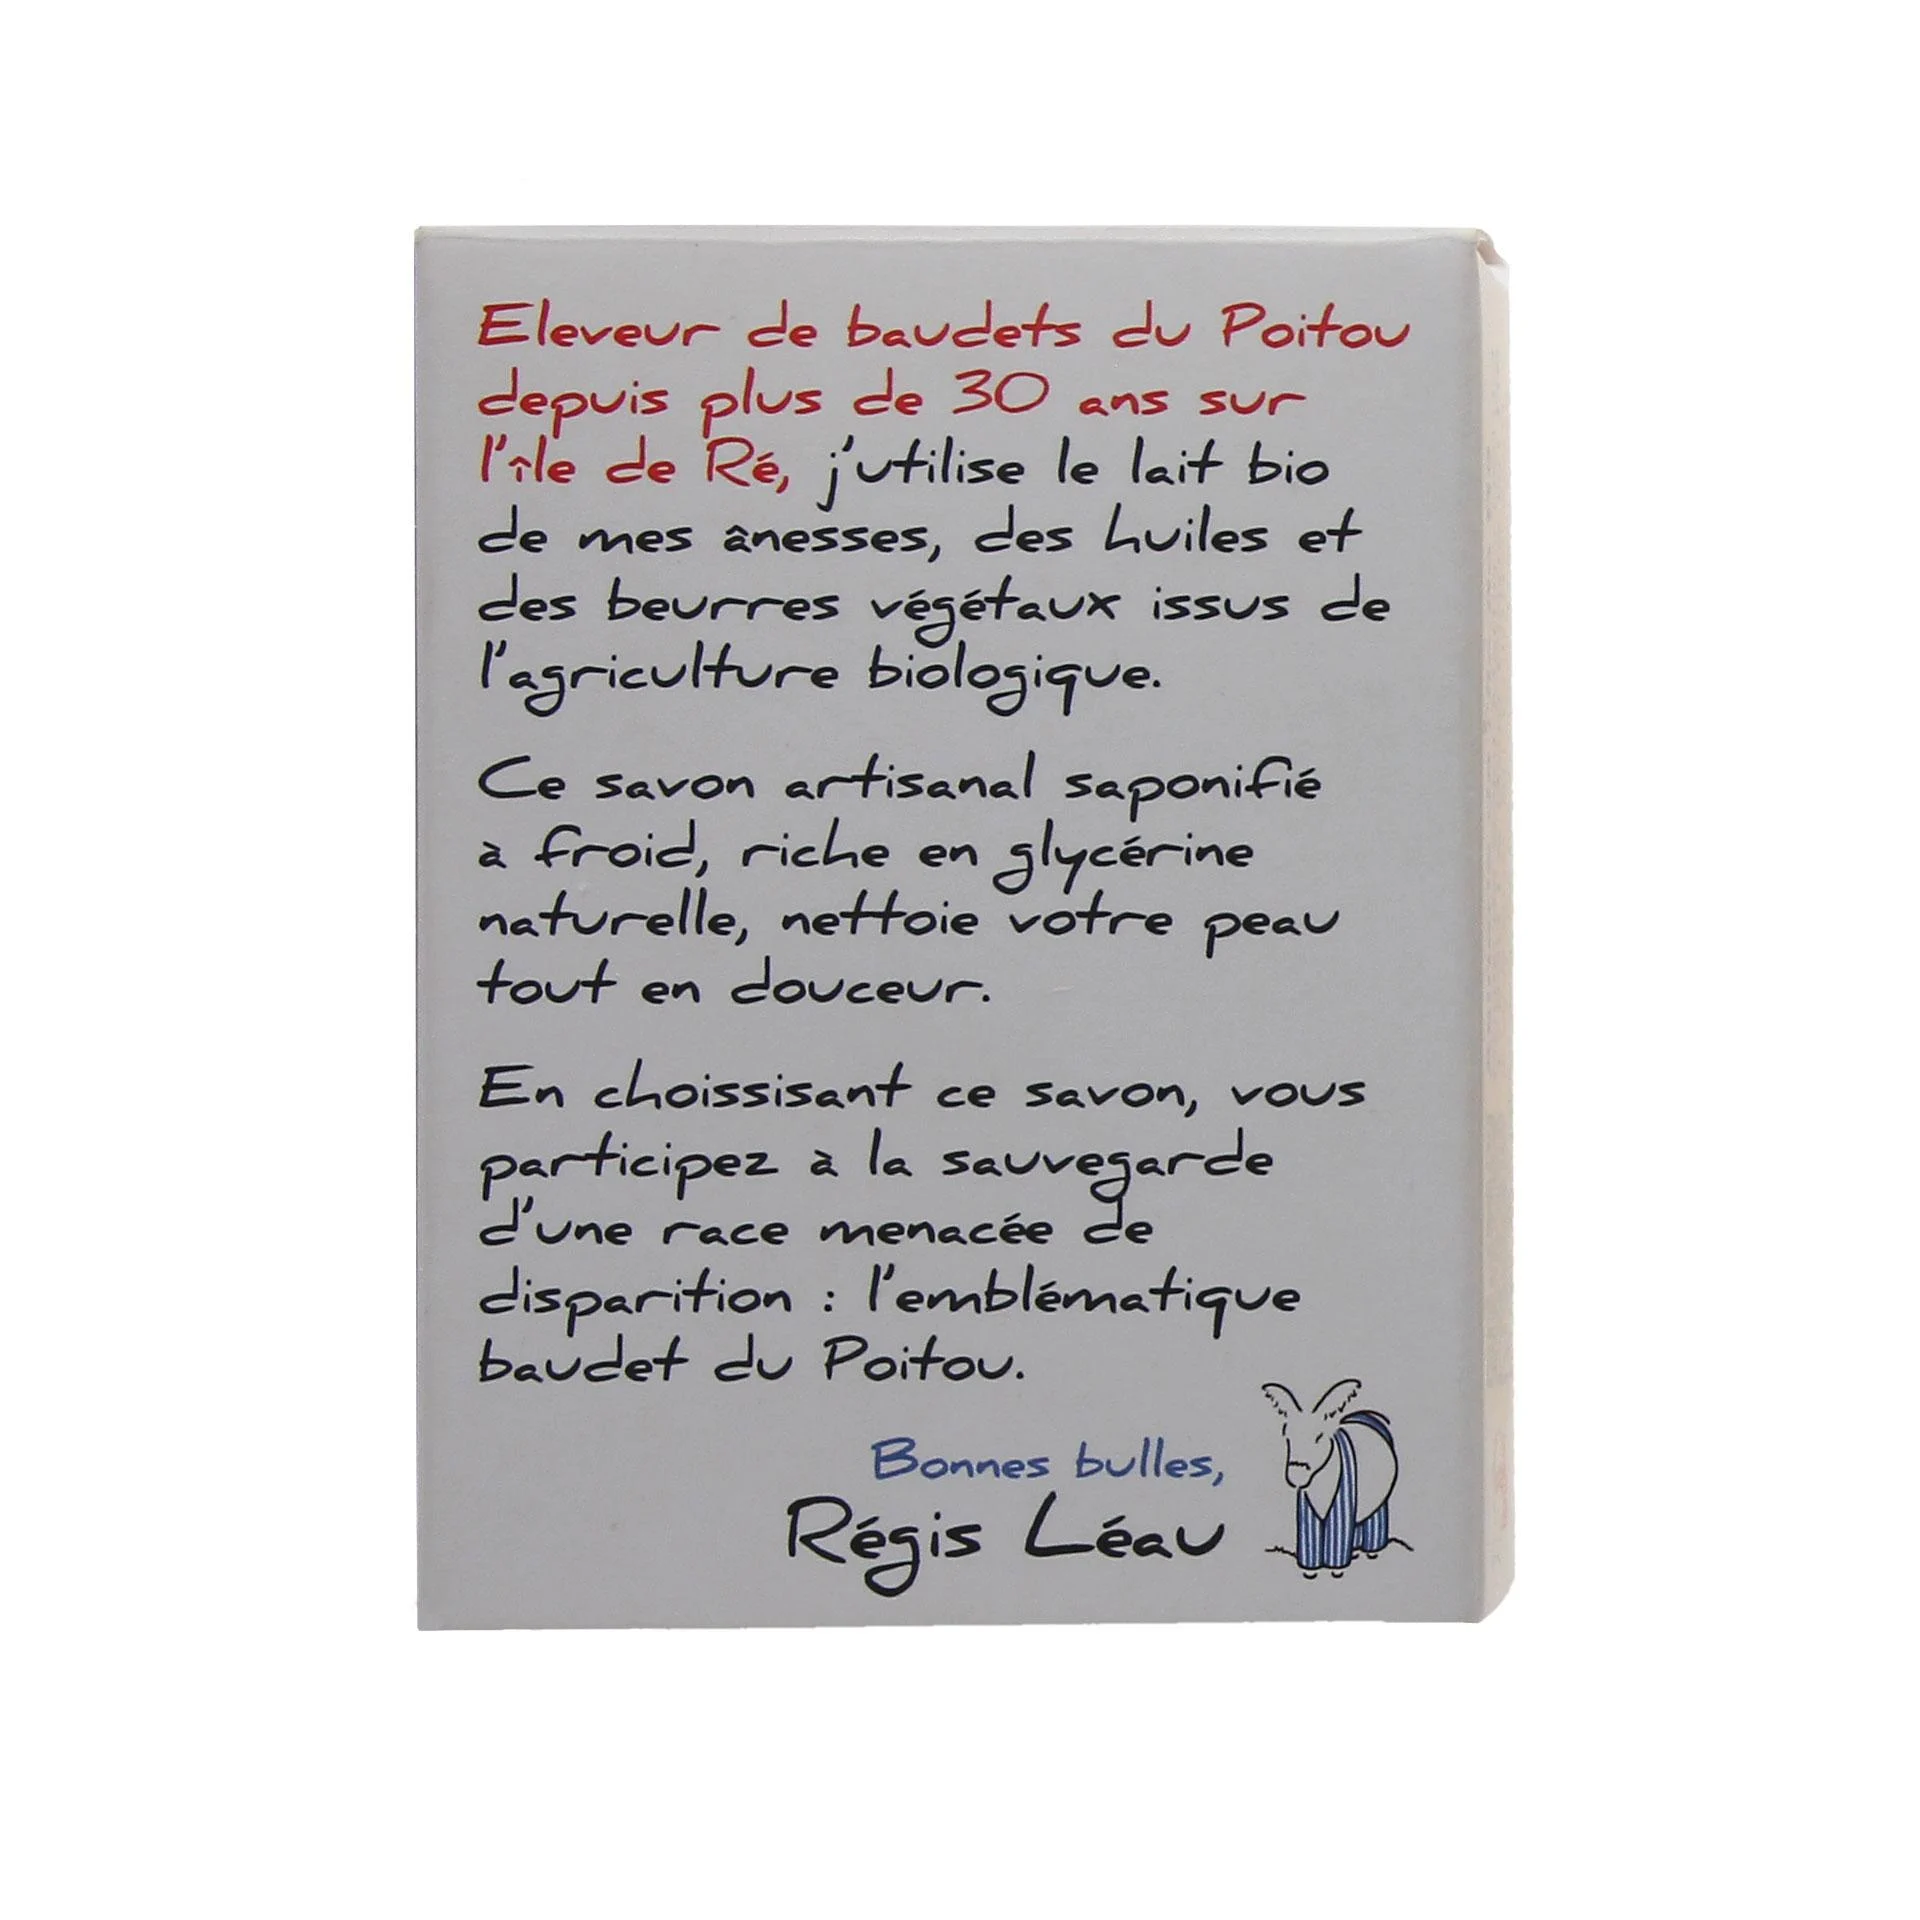 Eleveur de baudets du Poitou
depuis plus de 30 ans sur
l'île de Ré, j'utilise le lait bio
de mes ânesses, des huiles et
des beurres végétaux issus de
l'agriculture biologique.
Ce savon artisanal saponifié
à froid, riche en glycérine
naturelle, nettoie votre peau
tout en douceur.
En choissisant ce savon, vous
participez à la sauvegarde
d'une race menacée de
disparition : l'emblématique
baudet du Poitou.
Bonnes bulles,
Régis Léau